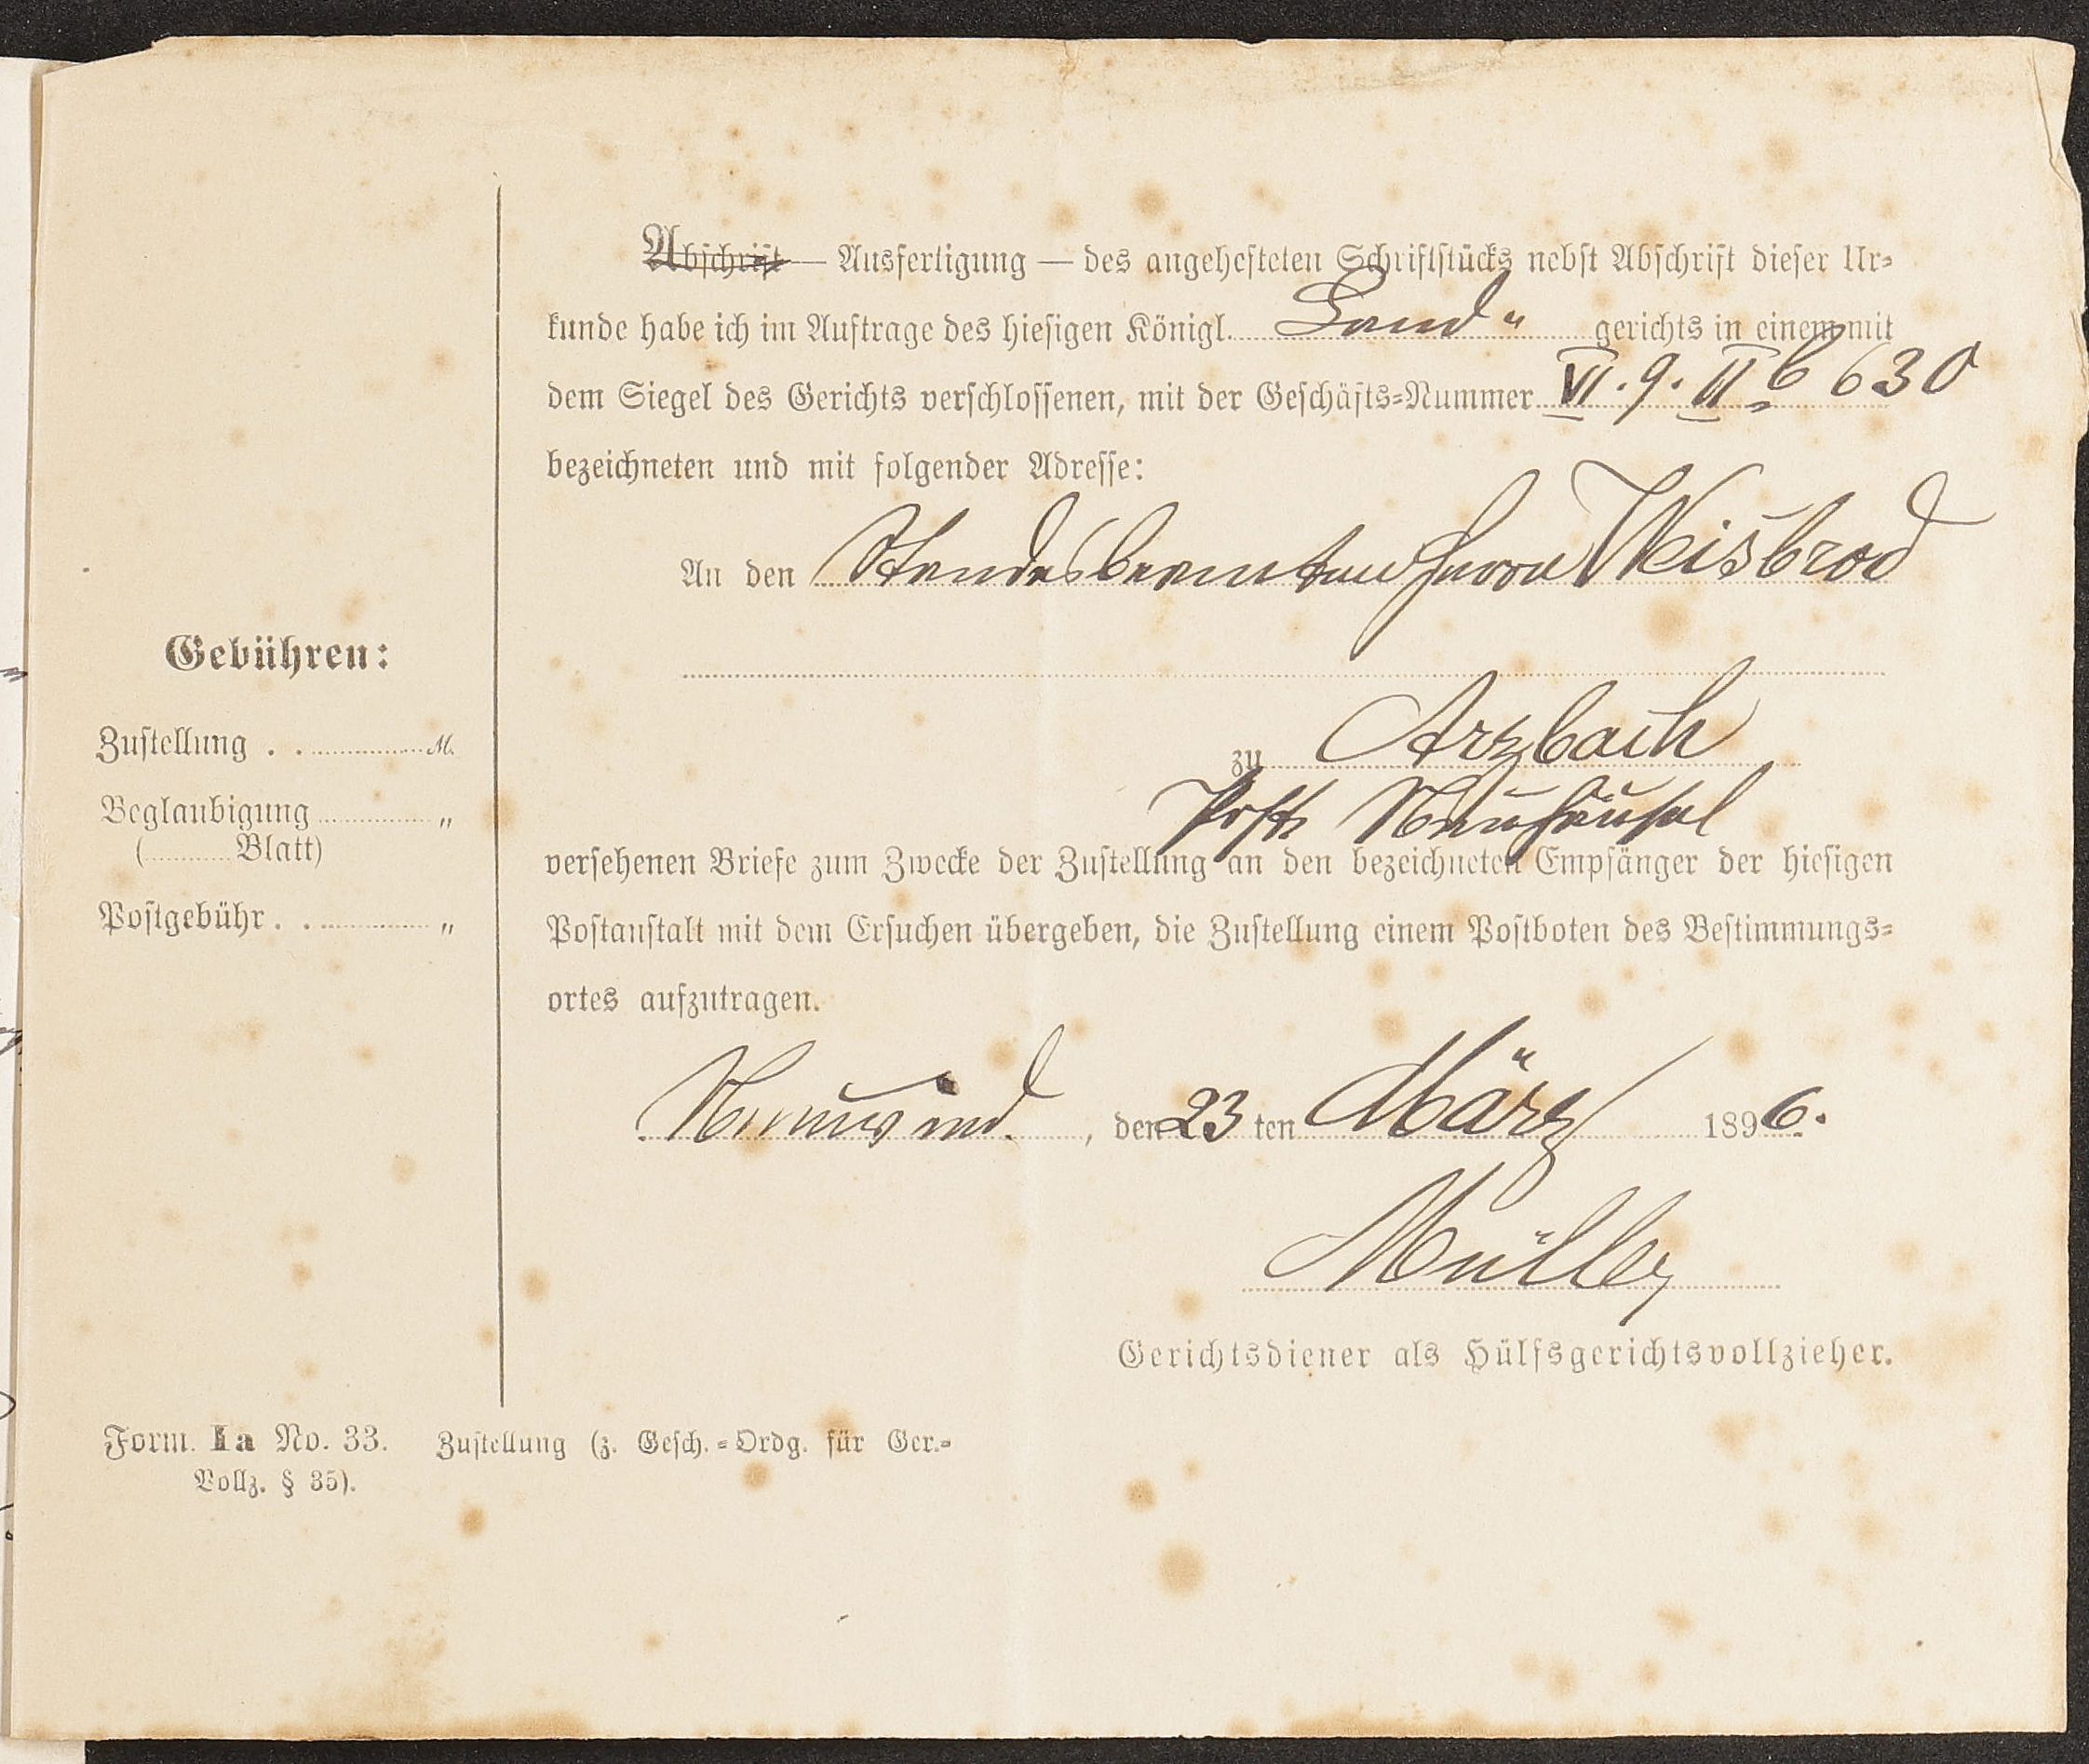 Abschrift — Ausfertigung — des angehefteten Schriftstücks nebst Abschrift dieser Ur-
kunde habe ich im Auftrage des hiesigen Königl. Land- gerichts in einem mit
dem Siegel des Gerichts verschlossenen, mit der Geschäfts-Nummer VI. 9. II b 630
bezeichneten und mit folgender Adresse:
An den Standesbeamten Herrn Weisbrod
zu Arzbach
Post Neuhäusel
versehenen Briefe zum Zwecke der Zustellung an den bezeichneten Empfänger der hiesigen
Postanstalt mit dem Ersuchen übergeben, die Zustellung einem Postboten des Bestimmungs-
ortes aufzutragen.
Neuwied, den 23 ten März 1896.
Müller
Gerichtsdiener als Hülfsgerichtsvollzieher.
Gebühren:
Zustellung . . M.
Beglaubigung "
( Blatt)
Postgebühr . . "
Form. Ia No. 33. Zustellung (z. Gesch.-Ordg. für Ger.-
Vollz. § 35).